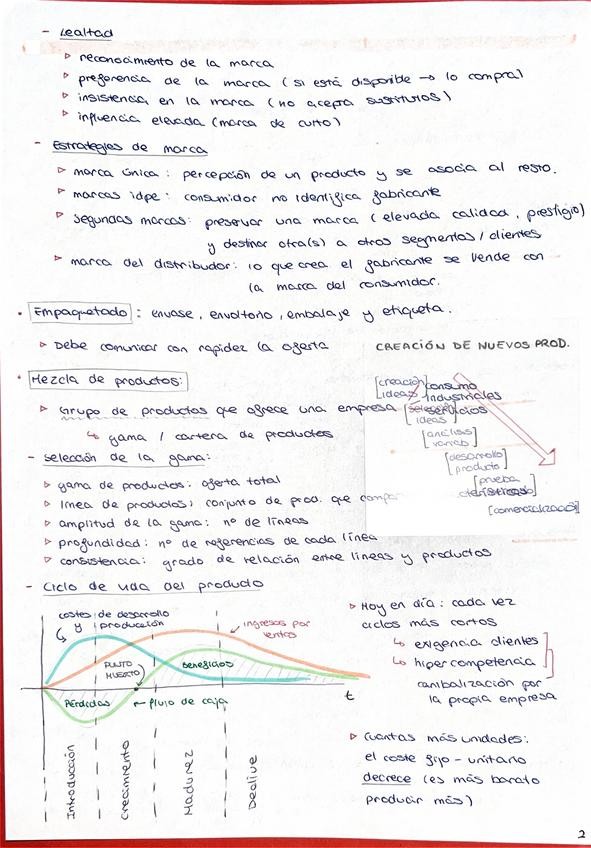 - Lealtad
▹ reconocimiento de la marca
▹ preferencia de la marca (si está disponible → lo compra)
▹ insistencia en la marca (no acepta sustitutos)
▹ influencia elevada (marca de culto)
- Estrategias de marca
▹ marca única: percepción de un producto y se asocia al resto.
▹ marcas idpe: consumidor no identifica fabricante
▹ segundas marcas: preservar una marca (elevada calidad, prestigio)
y destinar otra(s) a otros segmentos / clientes
▹ marca del distribuidor: lo que crea el fabricante se vende con
la marca del consumidor.
• Empaquetado: envase, envoltorio, embalaje y etiqueta.
▹ Debe comunicar con rapidez la oferta
• Mezcla de productos:
▹ Grupo de productos que ofrece una empresa
↳ gama / cartera de productos
- selección de la gama:
▹ gama de productos: oferta total
▹ línea de productos: conjunto de prod. que
▹ amplitud de la gama: nº de líneas
▹ profundidad: nº de referencias de cada línea
▹ consistencia: grado de relación entre líneas y productos
CREACIÓN DE NUEVOS PROD.
[creación ideas]
consumo
industriales
servicios
ideas]
[análisis
[desarrollo producto]
[prueba
[comercialización]
- Ciclo de vida del producto
costes de desarrollo
y producción
ingresos por
ventas
PUNTO
MUERTO
Beneficios
Pérdidas
flujo de caja
t
Introducción
Crecimiento
Madurez
Declive
▹ Hoy en día: cada vez
ciclos más cortos
↳ exigencia clientes
↳ hipercompetencia
canibalización por
la propia empresa
▹ Cuantas más unidades:
el coste fijo - unitario
decrece (es más barato
producir más)
2